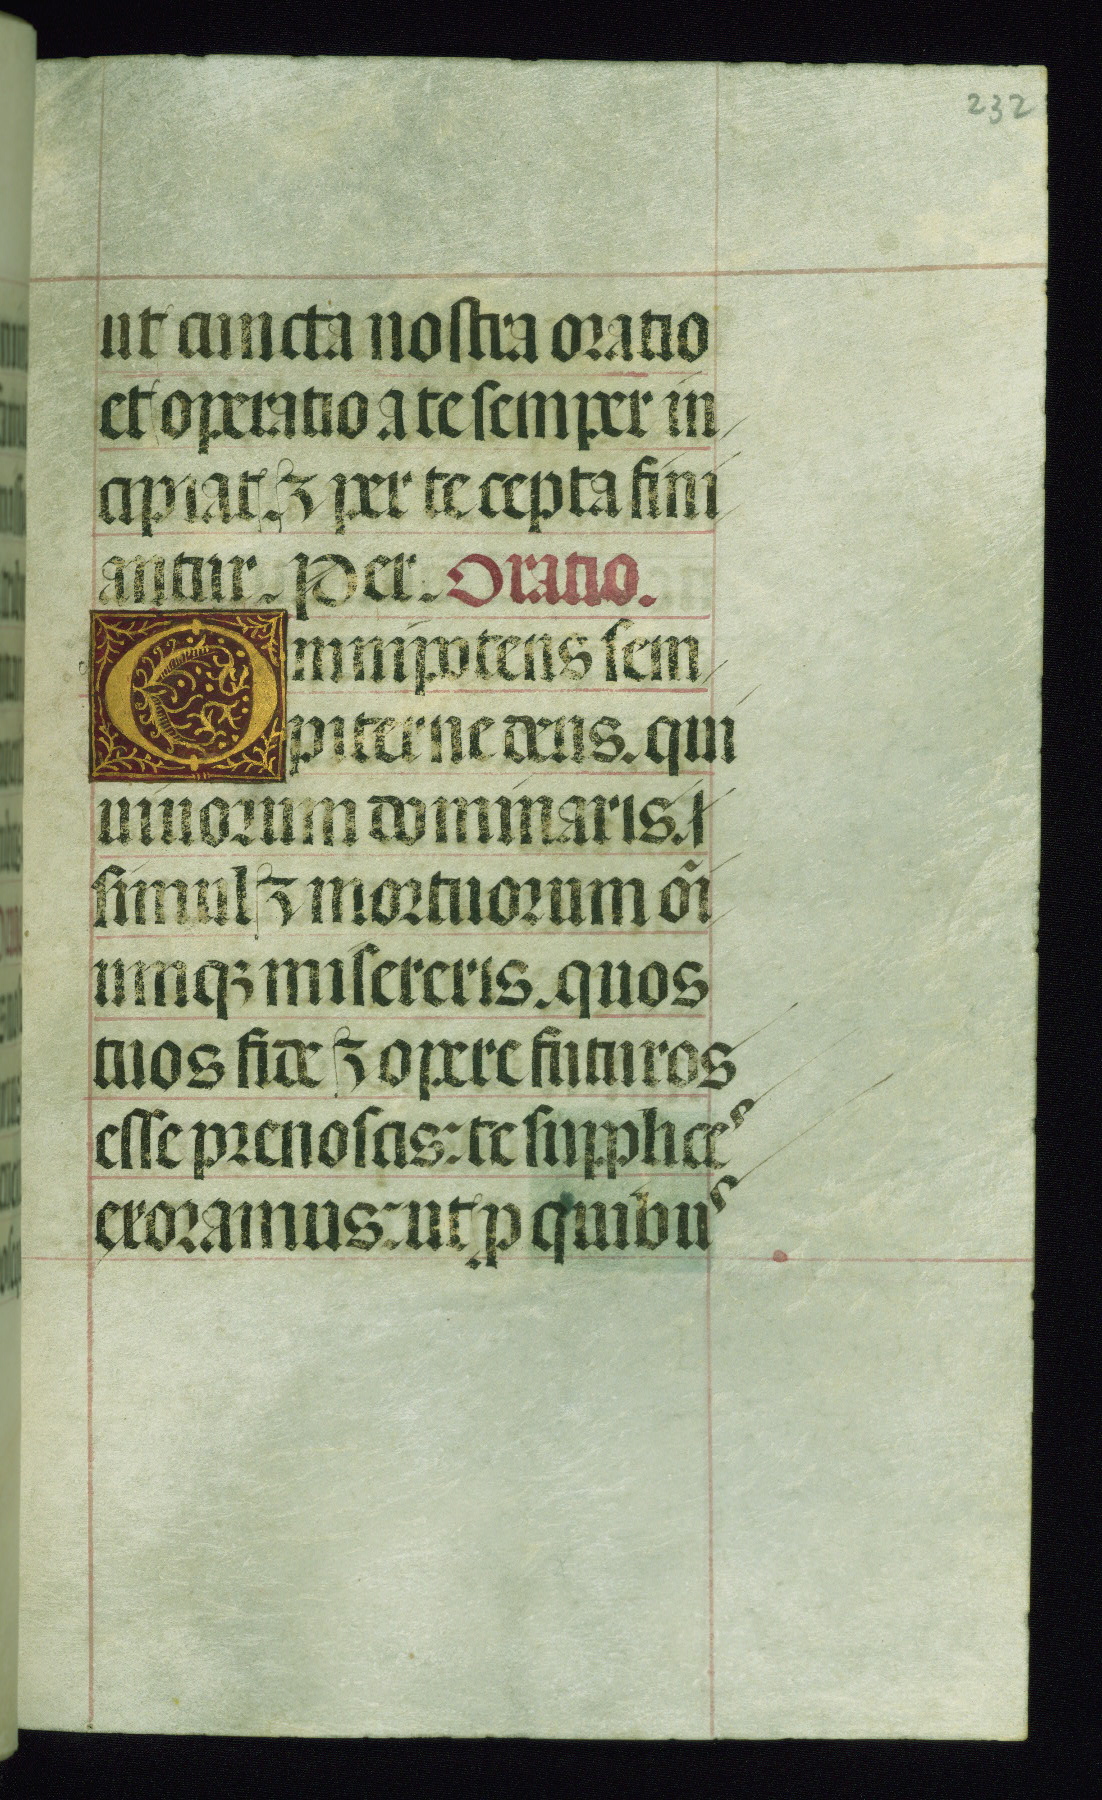 232
ut cuncta nostra oratio
et operatio a te semper in
cipiat ⁊ per te cepta fini
antur. Per. Oratio.
Omnipotens sem
piterne deus. qui
uiuorum dominaris.
simul ⁊ mortuorum oı̃
umqꝫ misereris. quos
tuos fide ⁊ opere futuros
esse prenoscis: te supplices
exoramus: ut ꝑ quibus